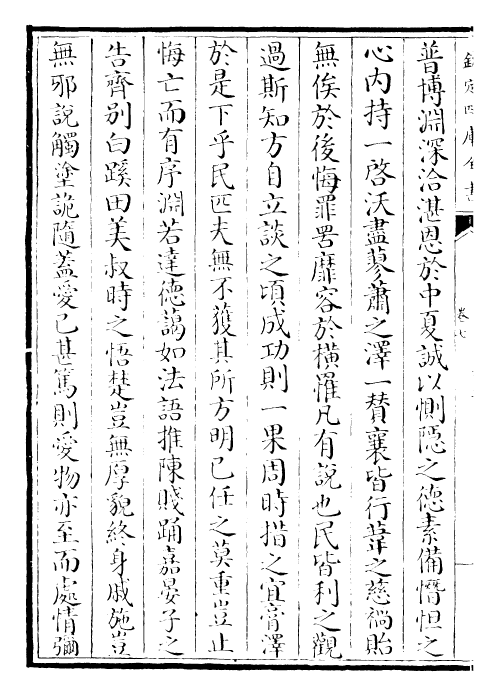 欽定四庫全書
卷七
普博淵深洽湛恩於中夏誠以惻隱之德素備憯怛之
心内持一啓沃盡蓼蕭之澤一賛襄皆行葦之慈禍貽
無俟於後悔罪罟靡容於横罹凡有説也民皆利之觀
過斯知方自立談之頃成功則一果周時措之宜膏澤
於是下乎民匹夫無不獲其所方明已任之莫重豈止
悔亡而有序淵若達德藹如法語推陳賤踊嘉晏子之
告齊别白蹊田美叔時之悟楚豈無厚貌終身戚施豈
無邪説觸塗詭隨蓋愛已甚篤則愛物亦至而處情彌